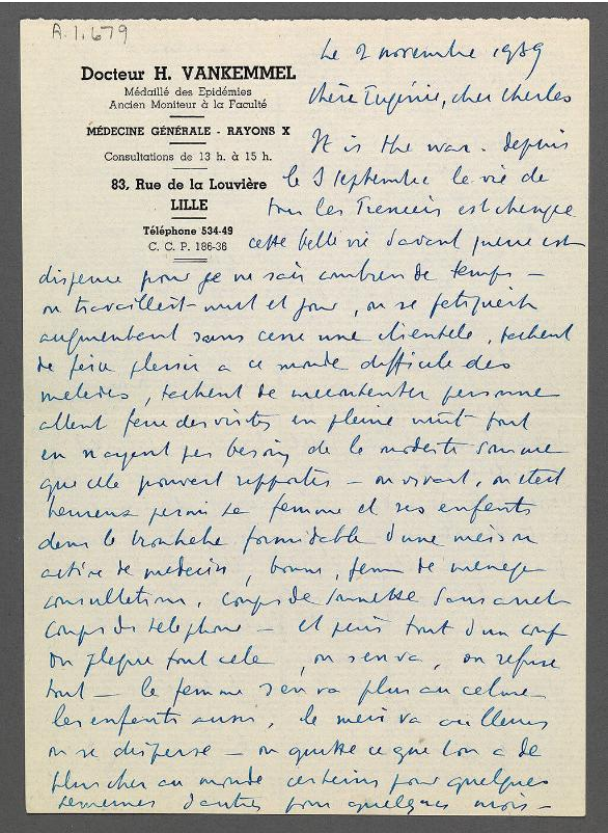 R.1.679
Docteur H. VANKEMMEL
Médaillé des Epidémies
Ancien Moniteur à la Faculté
MÉDECINE GÉNÉRALE - RAYONS X
Consultations de 13 h. à 15 h.
83, Rue de la Louvière
LILLE
Téléphone 534-49
C. C. P. 186-36
Le 2 novembre 1939
chère Eugénie, cher Charles
It is the war. depuis
le 3 septembre la vie de
tous les Francais est changée
cette belle vie d'avant guerre est
disparue pour je ne sais combien de temps -
on travaillait nuit et jour, on se fatiguait
augmentant sans cesse une clientele, tachant
de faire plaisir a ce monde difficile des
malades, tachant de mecontenter personne
allant faire des visites en pleine nuit tout
en n'ayant pas besoin de la modeste somme
que cela pouvait rapporter - on vivait, on etait
heureux parmi sa femme et ses enfants
dans le formidable d'une maison
active de medecin, bonnes, femme de menage
consultations, coups de sonnette sans arret
coups de telephone - et puis tout d'un coup
on plaque tout cela, on s'en va, on refuse
tout - la femme s'en va plus au calme
les enfants aussi, le mari va ailleurs
on se disperse - on quitte ce que l'on a de
plus cher au monde certains pour quelques
semaines d'autres pour quelques mois -